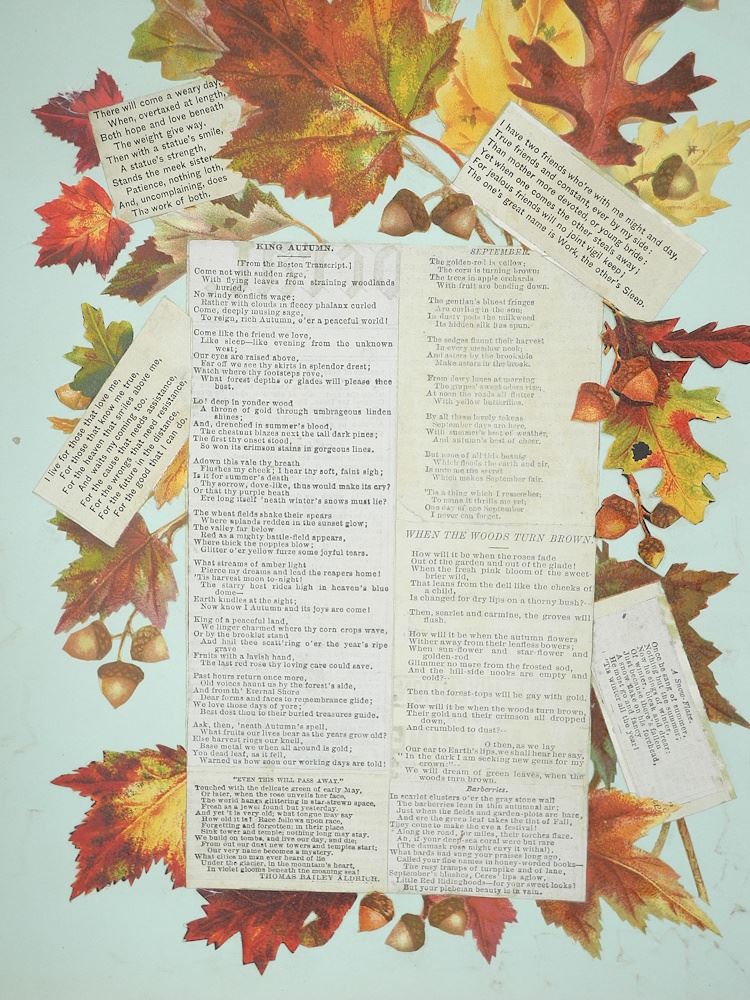 There will come a weary day,
When, overtaxed at length,
Both hope and love beneath
The weight give way.
Then with a statue's smile,
A statue's strength,
Stands the meek sister
Patience, nothing loth,
And, uncomplaining, does
The work of both.
I have two friends who're with me night and day,
True friends and constant, ever by my side;
Than mother more devoted, or young bride;
Yet when one comes the other steals away;
For jealous friends will no joint vigil keep;
The one's great name is Work, the other's Sleep.
I live for those that love me,
For those that know me true,
For the heaven that smiles above me,
And waits my coming too.
For the cause that needs assistance,
For the wrongs that need resistance,
For the future in the distance,
For the good that I can do.
KING AUTUMN.
[From the Boston Transcript.]
Come not with sudden rage,
With flying leaves from straining woodlands
buried,
No windy conflicts wage;
Rather with clouds in fleecy phalanx curled
Come, deeply musing sage,
To reign, rich Autumn, o'er a peaceful world!
Come like the friend we love,
Like sleep—like evening from the unknown
west;
Our eyes are raised above,
Far off we see thy skirts in splendor drest;
Watch where thy footsteps rove,
What forest depths or glades will please thee
best.
Lo! deep in yonder wood
A throne of gold through umbrageous linden
shines;
And, drenched in summer's blood,
The chestnut blazes next the tall dark pines;
The first thy onset stood,
So won its crimson stains in gorgeous lines.
Adown this vale thy breath
Flushes my cheek; I hear thy soft, faint sigh;
Is it for summer's death
Thy sorrow, dove-like, thus would make its cry?
Or that thy purple heath
Ere long itself 'neath winter's snows must lie?
The wheat fields shake their spears
Where uplands redden in the sunset glow;
The valley far below
Red as a mighty battle-field appears,
Where thick the poppies blow;
Glitter o'er yellow furze some joyful tears.
What streams of amber light
Pierce my dreams and lead the reapers home!
'Tis harvest moon to-night!
The starry host rides high in heaven's blue
dome—
Earth kindles at the sight;
Now know I Autumn and its joys are come!
King of a peaceful land,
We linger charmed where thy corn crops wave,
Or by the brooklet stand
And hail thee scatt'ring o'er the year's ripe
grave
Fruits with a lavish hand,
The last red rose thy loving care could save.
Past hours return once more,
Old voices haunt us by the forest's side,
And from th' Eternal Shore
Dear forms and faces to remembrance glide;
We love those days of yore;
Best dost thou to their buried treasures guide.
Ask, then, 'neath Autumn's spell,
What fruits our lives bear as the years grow old?
Else harvest rings our knell,
Base metal we when all around is gold;
You dead leaf, as it fell,
Warned us how soon our working days are told!
"EVEN THIS WILL PASS AWAY."
Touched with the delicate green of early May,
Or later, when the rose unveils her face,
The world hangs glittering in star-strewn space,
Fresh as a jewel found but yesterday.
And yet 't is very old; what tongue may say
How old it is? Race follows upon race,
Forgetting and forgotten; in their place
Sink tower and temple; nothing long may stay.
We build on tombs, and live our day, and die;
From out our dust new towers and temples start;
Our very name becomes a mystery.
What cities no man ever heard of lie
Under the glacier, in the mountain's heart,
In violet glooms beneath the moaning sea!
THOMAS BAILEY ALDRICH.
SEPTEMBER.
The golden-rod is yellow;
The corn is turning brown;
The trees in apple orchards
With fruit are bending down.
The gentian's bluest fringes
Are curling in the sun;
In dusty pods the milkweed
Its hidden silk has spun.
The sedges flaunt their harvest
In every meadow nook;
And asters by the brookside
Make asters in the brook.
From dewy lanes at morning
The grapes' sweet odors rise;
At noon the roads all flutter
With yellow butterflies.
By all these lovely tokens
September days are here,
With summer's best of weather,
And autumn's best of cheer.
But none of all this beauty
Which floods the earth and air,
Is unto me the secret
Which makes September fair.
'Tis a thing which I remember;
To name it thrills me yet:
One day of one September
I never can forget.
WHEN THE WOODS TURN BROWN.
How will it be when the roses fade
Out of the garden and out of the glade!
When the fresh pink bloom of the sweet-
brier wild,
That leans from the dell like the cheeks of
a child,
Is changed for dry hips on a thorny bush?—
Then, scarlet and carmine, the groves will
flush.
How will it be when the autumn flowers
Wither away from their leafless bowers;
When sun-flower and star-flower and
golden-rod
Glimmer no more from the frosted sod,
And the hill-side nooks are empty and
cold?—
Then the forest-tops will be gay with gold.
How will it be when the woods turn brown,
Their gold and their crimson all dropped
down,
And crumbled to dust?—
O then, as we lay
Our ear to Earth's lips, we shall hear her say,
"In the dark I am seeking new gems for my
crown:"—
We will dream of green leaves, when the
woods turn brown.
Barberries.
In scarlet clusters o'er the gray stone wall
The barberries lean in thin autumnal air;
Just when the fields and garden-plots are bare,
And ere the green leaf takes the tint of Fall,
They come to make the eve a festival!
Along the road, for miles, their torches flare.
Ah, if your deep-sea coral were but rare
(The damask rose might envy it withal),
What bards had sung your praises long ago,
Called you fine names in honey-worded books—
The rosy tramps of turnpike and of lane,
September's blushes, Ceres' lips aglow,
Little Red Ridinghoods—for your sweet looks!
But your plebeian beauty is in vain.
A Snow Flake.
Once he sang of summer,
Nothing but the summer;
Now he sings of winter,
Of winter bleak and drear;
Just because there's fallen
A snow-flake on his forehead,
He must go and fancy
'Tis winter all the year!